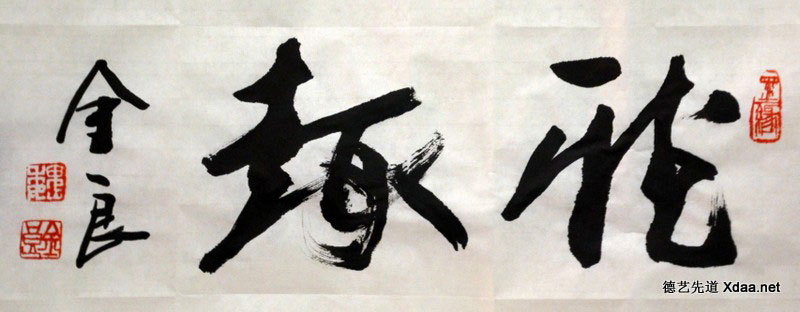 雅趣
金良
德艺先道 Xdaa.net